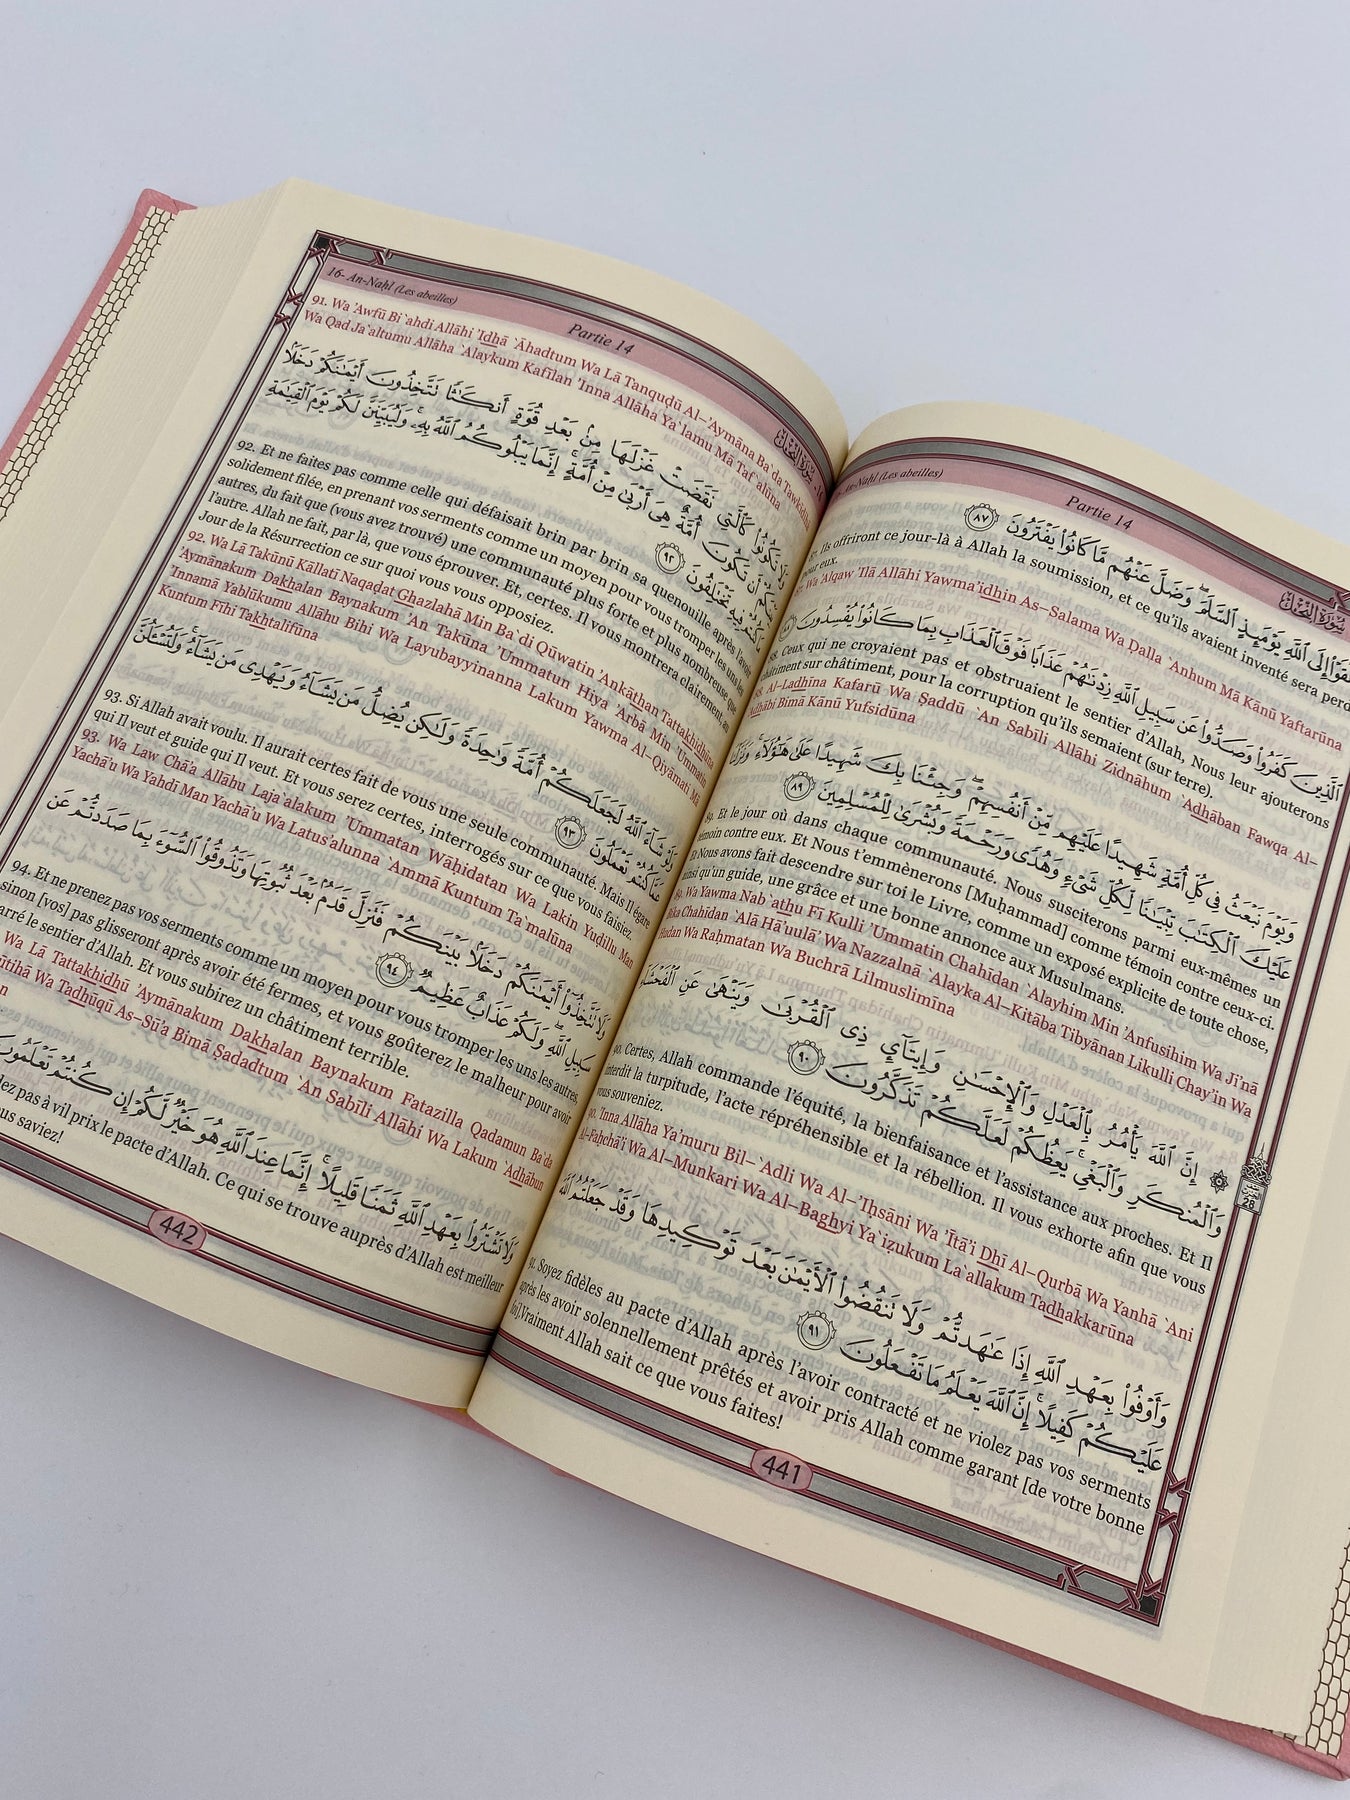 An-Naḥl (Les abeilles)
Partie 14
سُورَةُ النَّحْلِ
إِلَى ٱللَّهِ يَوْمَئِذٍ ٱلسَّلَمَ ۖ وَضَلَّ عَنْهُم مَّا كَانُوا۟ يَفْتَرُونَ ٨٧
Ils offriront ce jour-là à Allah la soumission, et ce qu'ils avaient inventé sera
pour eux.
Wa 'Alqaw 'Ilá Allāhi Yawma'idhin As–Salama Wa Ḍalla `Anhum Mā Kānū Yaftarūna
ٱلَّذِينَ كَفَرُوا۟ وَصَدُّوا۟ عَن سَبِيلِ ٱللَّهِ زِدْنَٰهُمْ عَذَابًا فَوْقَ ٱلْعَذَابِ بِمَا كَانُوا۟ يُفْسِدُونَ ٨٨
Ceux qui ne croyaient pas et obstruaient le sentier d'Allah, Nous leur ajouterons
châtiment sur châtiment, pour la corruption qu'ils semaient (sur terre).
Al–Ladhīna Kafarū Wa Ṣaddū `An Sabīli Allāhi Zidnāhum `Adhāban Fawqa Al–
Bimā Kānū Yufsidūna
وَيَوْمَ نَبْعَثُ فِى كُلِّ أُمَّةٍ شَهِيدًا عَلَيْهِم مِّنْ أَنفُسِهِمْ ۖ وَجِئْنَا بِكَ شَهِيدًا عَلَىٰ هَٰٓؤُلَآءِ ۚ وَنَزَّلْنَا
عَلَيْكَ ٱلْكِتَٰبَ تِبْيَٰنًا لِّكُلِّ شَىْءٍ وَهُدًى وَرَحْمَةً وَبُشْرَىٰ لِلْمُسْلِمِينَ ٨٩
Et le jour où dans chaque communauté, Nous susciterons parmi eux-mêmes un
témoin contre eux. Et Nous t'emmènerons [Muḥammad] comme témoin contre ceux-ci.
Et Nous avons fait descendre sur toi le Livre, comme un exposé explicite de toute chose,
ainsi qu'un guide, une grâce et une bonne annonce aux Musulmans.
Wa Yawma Nab`athu Fī Kulli 'Ummatin Chahīdan `Alayhim Min 'Anfusihim Wa Ji'nā
Bika Chahīdan `Alá Hā'uulā' Wa Nazzalnā `Alayka Al–Kitāba Tibyānan Likulli Chay'in Wa
Hudan Wa Raḥmatan Wa Buchrá Lilmuslimīna
إِنَّ ٱللَّهَ يَأْمُرُ بِٱلْعَدْلِ وَٱلْإِحْسَٰنِ وَإِيتَآئِ ذِى ٱلْقُرْبَىٰ وَيَنْهَىٰ عَنِ ٱلْفَحْشَآءِ
وَٱلْمُنكَرِ وَٱلْبَغْىِ ۚ يَعِظُكُمْ لَعَلَّكُمْ تَذَكَّرُونَ ٩٠
90. Certes, Allah commande l'équité, la bienfaisance et l'assistance aux proches. Et Il
interdit la turpitude, l'acte répréhensible et la rébellion. Il vous exhorte afin que vous
vous souveniez.
90. 'Inna Allāha Ya'muru Bil–`Adli Wa Al–'Iḥsāni Wa 'Ītā'i Dhī Al–Qurbá Wa Yanhá `Ani
Al–Faḥchā'i Wa Al–Munkari Wa Al–Baghyi Ya`iẓukum La`allakum Tadhakkarūna
28
وَأَوْفُوا۟ بِعَهْدِ ٱللَّهِ إِذَا عَٰهَدتُّمْ وَلَا تَنقُضُوا۟ ٱلْأَيْمَٰنَ بَعْدَ تَوْكِيدِهَا وَقَدْ جَعَلْتُمُ ٱللَّهَ
عَلَيْكُمْ كَفِيلًا ۚ إِنَّ ٱللَّهَ يَعْلَمُ مَا تَفْعَلُونَ ٩١
91. Soyez fidèles au pacte d'Allah après l'avoir contracté et ne violez pas vos serments
après les avoir solennellement prêtés et avoir pris Allah comme garant [de votre bonne
foi].Vraiment Allah sait ce que vous faites!
441
16- An-Naḥl (Les abeilles)
Partie 14
سُورَةُ النَّحْلِ
91. Wa 'Awfū Bi`ahdi Allāhi 'Idhā `Āhadtum Wa Lā Tanquḍū Al–'Aymāna Ba`da Tawkīdihā
Wa Qad Ja`altumu Allāha `Alaykum Kafīlan 'Inna Allāha Ya`lamu Mā Taf`alūna
تَكُونُوا۟ كَٱلَّتِى نَقَضَتْ غَزْلَهَا مِنۢ بَعْدِ قُوَّةٍ أَنكَٰثًا تَتَّخِذُونَ أَيْمَٰنَكُمْ دَخَلًۢا
أَن تَكُونَ أُمَّةٌ هِىَ أَرْبَىٰ مِنْ أُمَّةٍ ۚ إِنَّمَا يَبْلُوكُمُ ٱللَّهُ بِهِۦ ۚ وَلَيُبَيِّنَنَّ لَكُمْ يَوْمَ ٱلْقِيَٰمَةِ
مَا كُنتُمْ فِيهِ تَخْتَلِفُونَ ٩٢
92. Et ne faites pas comme celle qui défaisait brin par brin sa quenouille après l'avoir
solidement filée, en prenant vos serments comme un moyen pour vous tromper les uns les
autres, du fait que (vous avez trouvé) une communauté plus forte et plus nombreuse que
l'autre. Allah ne fait, par là, que vous éprouver. Et, certes. Il vous montrera clairement, au
Jour de la Résurrection ce sur quoi vous vous opposiez.
92. Wa Lā Takūnū Kāllatī Naqaḍat Ghazlahā Min Ba`di Qūwatin 'Ankāthan Tattakhidhūna
'Aymānakum Dakhalan Baynakum 'An Takūna 'Ummatun Hiya 'Arbá Min 'Ummatin
'Innamā Yablūkumu Allāhu Bihi Wa Layubayyinanna Lakum Yawma Al–Qiyāmati Mā
Kuntum Fīhi Takhtalifūna
وَلَوْ شَآءَ ٱللَّهُ لَجَعَلَكُمْ أُمَّةً وَٰحِدَةً وَلَٰكِن يُضِلُّ مَن يَشَآءُ وَيَهْدِى مَن يَشَآءُ ۚ وَلَتُسْـَٔلُنَّ
عَمَّا كُنتُمْ تَعْمَلُونَ ٩٣
93. Si Allah avait voulu. Il aurait certes fait de vous une seule communauté. Mais Il égare
qui Il veut et guide qui Il veut. Et vous serez certes, interrogés sur ce que vous faisiez.
93. Wa Law Chā'a Allāhu Laja`alakum 'Ummatan Wāḥidatan Wa Lakin Yuḍillu Man
Yachā'u Wa Yahdī Man Yachā'u Wa Latus'alunna `Ammā Kuntum Ta`malūna
وَلَا تَتَّخِذُوٓا۟ أَيْمَٰنَكُمْ دَخَلًۢا بَيْنَكُمْ فَتَزِلَّ قَدَمٌۢ بَعْدَ ثُبُوتِهَا وَتَذُوقُوا۟ ٱلسُّوٓءَ بِمَا صَدَدتُّمْ عَن
سَبِيلِ ٱللَّهِ ۖ وَلَكُمْ عَذَابٌ عَظِيمٌ ٩٤
94. Et ne prenez pas vos serments comme un moyen pour vous tromper les uns les autres,
sinon [vos] pas glisseront après avoir été fermes, et vous goûterez le malheur pour avoir
barré le sentier d'Allah. Et vous subirez un châtiment terrible.
Wa Lā Tattakhidhū 'Aymānakum Dakhalan Baynakum Fatazilla Qadamun Ba`da
Wa Tadhūqū As–Sū'a Bimā Ṣadadtum `An Sabīli Allāhi Wa Lakum `Adhābun
وَلَا تَشْتَرُوا۟ بِعَهْدِ ٱللَّهِ ثَمَنًا قَلِيلًا ۚ إِنَّمَا عِندَ ٱللَّهِ هُوَ خَيْرٌ لَّكُمْ إِن كُنتُمْ تَعْلَمُونَ
pas à vil prix le pacte d'Allah. Ce qui se trouve auprès d'Allah est meilleur
saviez!
442